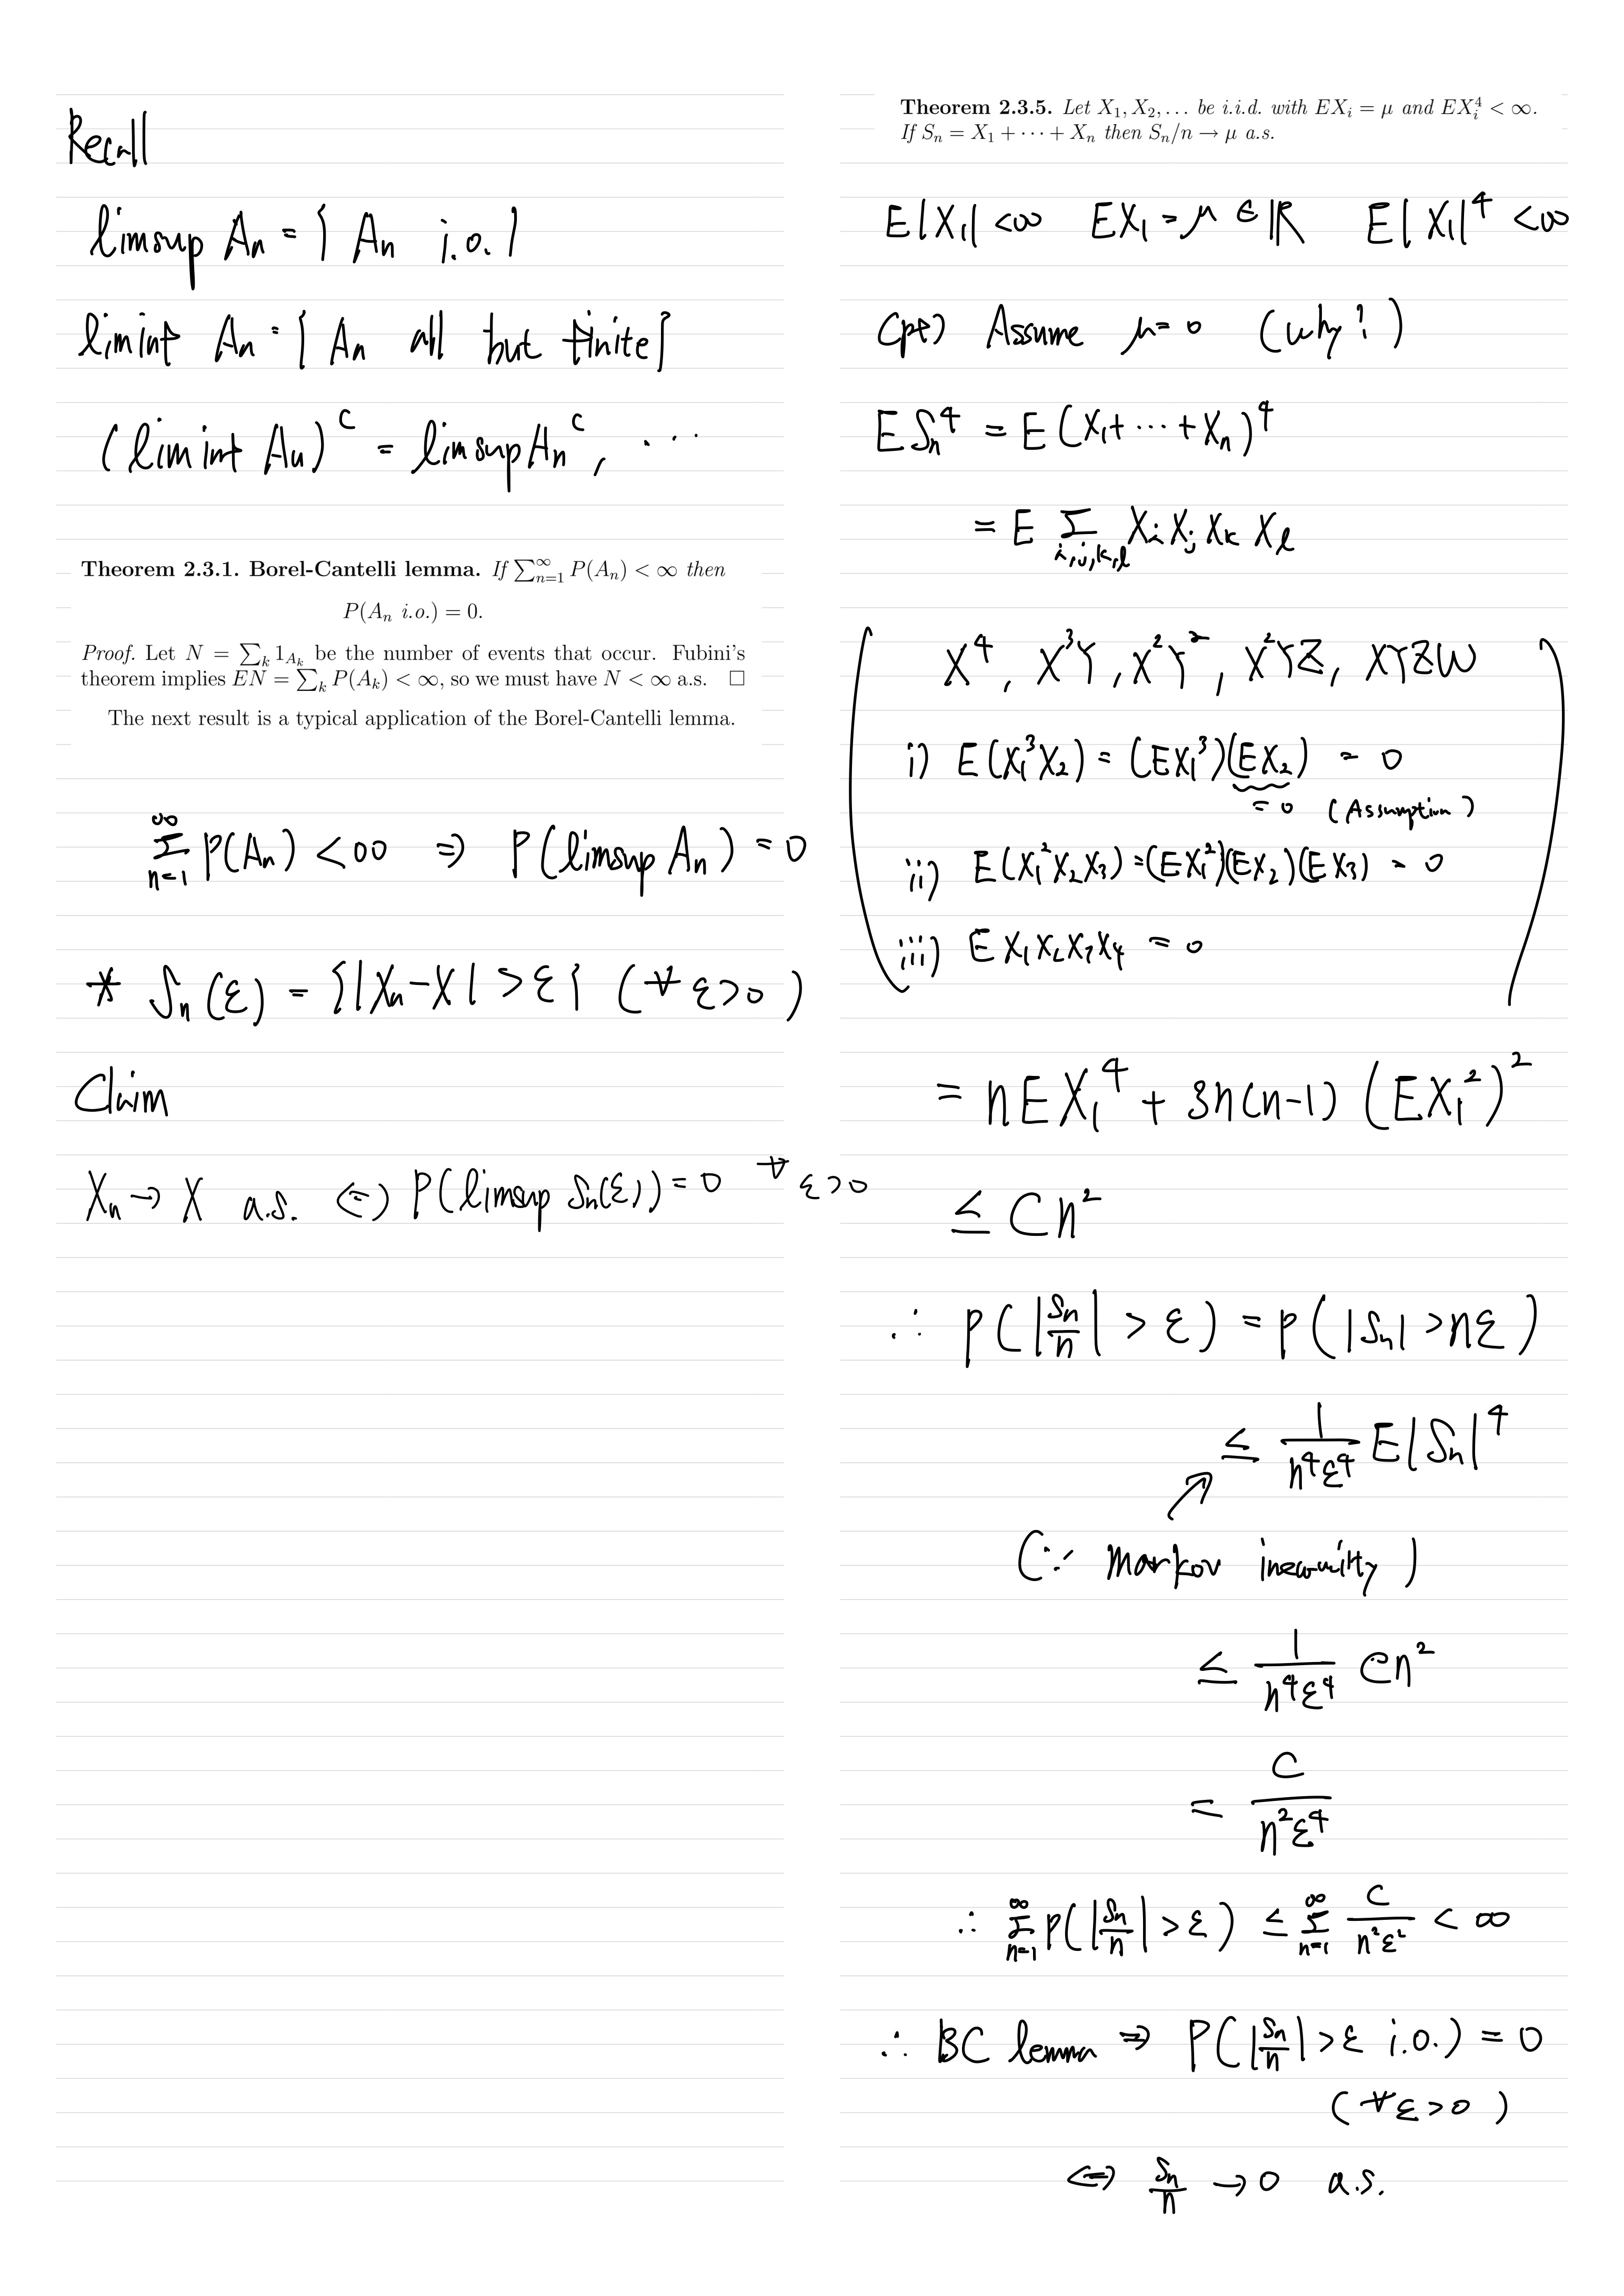 Recall
limsup An = { An i.o. }
liminf An = { An all but finite }
(liminf An)^c = limsup An^c, ...
Theorem 2.3.1. Borel-Cantelli lemma. If ∑_{n=1}^∞ P(A_n) < ∞ then
P(A_n i.o.) = 0.
Proof. Let N = ∑_k 1_{A_k} be the number of events that occur. Fubini's
theorem implies EN = ∑_k P(A_k) < ∞, so we must have N < ∞ a.s. □
The next result is a typical application of the Borel-Cantelli lemma.
∑_{n=1}^∞ P(An) < ∞ ⇒ P(limsup An) = 0
* Sn(ε) = {|Xn - X| > ε} (∀ε>0)
Claim
Xn → X a.s. ⇔ P(limsup Sn(ε)) = 0 ∀ε>0
Theorem 2.3.5. Let X_1, X_2, ... be i.i.d. with EX_i = μ and EX_i^4 < ∞.
If S_n = X_1 + ⋯ + X_n then S_n/n → μ a.s.
E|X_1| < ∞ EX_1 = μ ∈ ℝ E|X_1|^4 < ∞
(pf) Assume μ = 0 (why?)
E Sn^4 = E(X_1 + ⋯ + X_n)^4
= E ∑_{i,j,k,l} X_i X_j X_k X_l
X^4, X^3Y, X^2Y^2, X^2YZ, XYZW
i) E(X_1^3 X_2) = (EX_1^3)(EX_2) = 0
= 0 (Assumption)
ii) E(X_1^2 X_2 X_3) = (EX_1^2)(EX_2)(EX_3) = 0
iii) E X_1 X_2 X_3 X_4 = 0
= nEX_1^4 + 3n(n-1) (EX_1^2)^2
≤ Cn^2
∴ P(|Sn/n| > ε) = P(|Sn| > nε)
≤ 1/(n^4ε^4) E|Sn|^4
(∵ Markov inequality)
≤ 1/(n^4ε^4) Cn^2
= C/(n^2ε^4)
∴ ∑_{n=1}^∞ P(|Sn/n| > ε) ≤ ∑_{n=1}^∞ C/(n^2ε^2) < ∞
∴ BC lemma ⇒ P(|Sn/n| > ε i.o.) = 0
(∀ε>0)
⇔ Sn/n → 0 a.s.